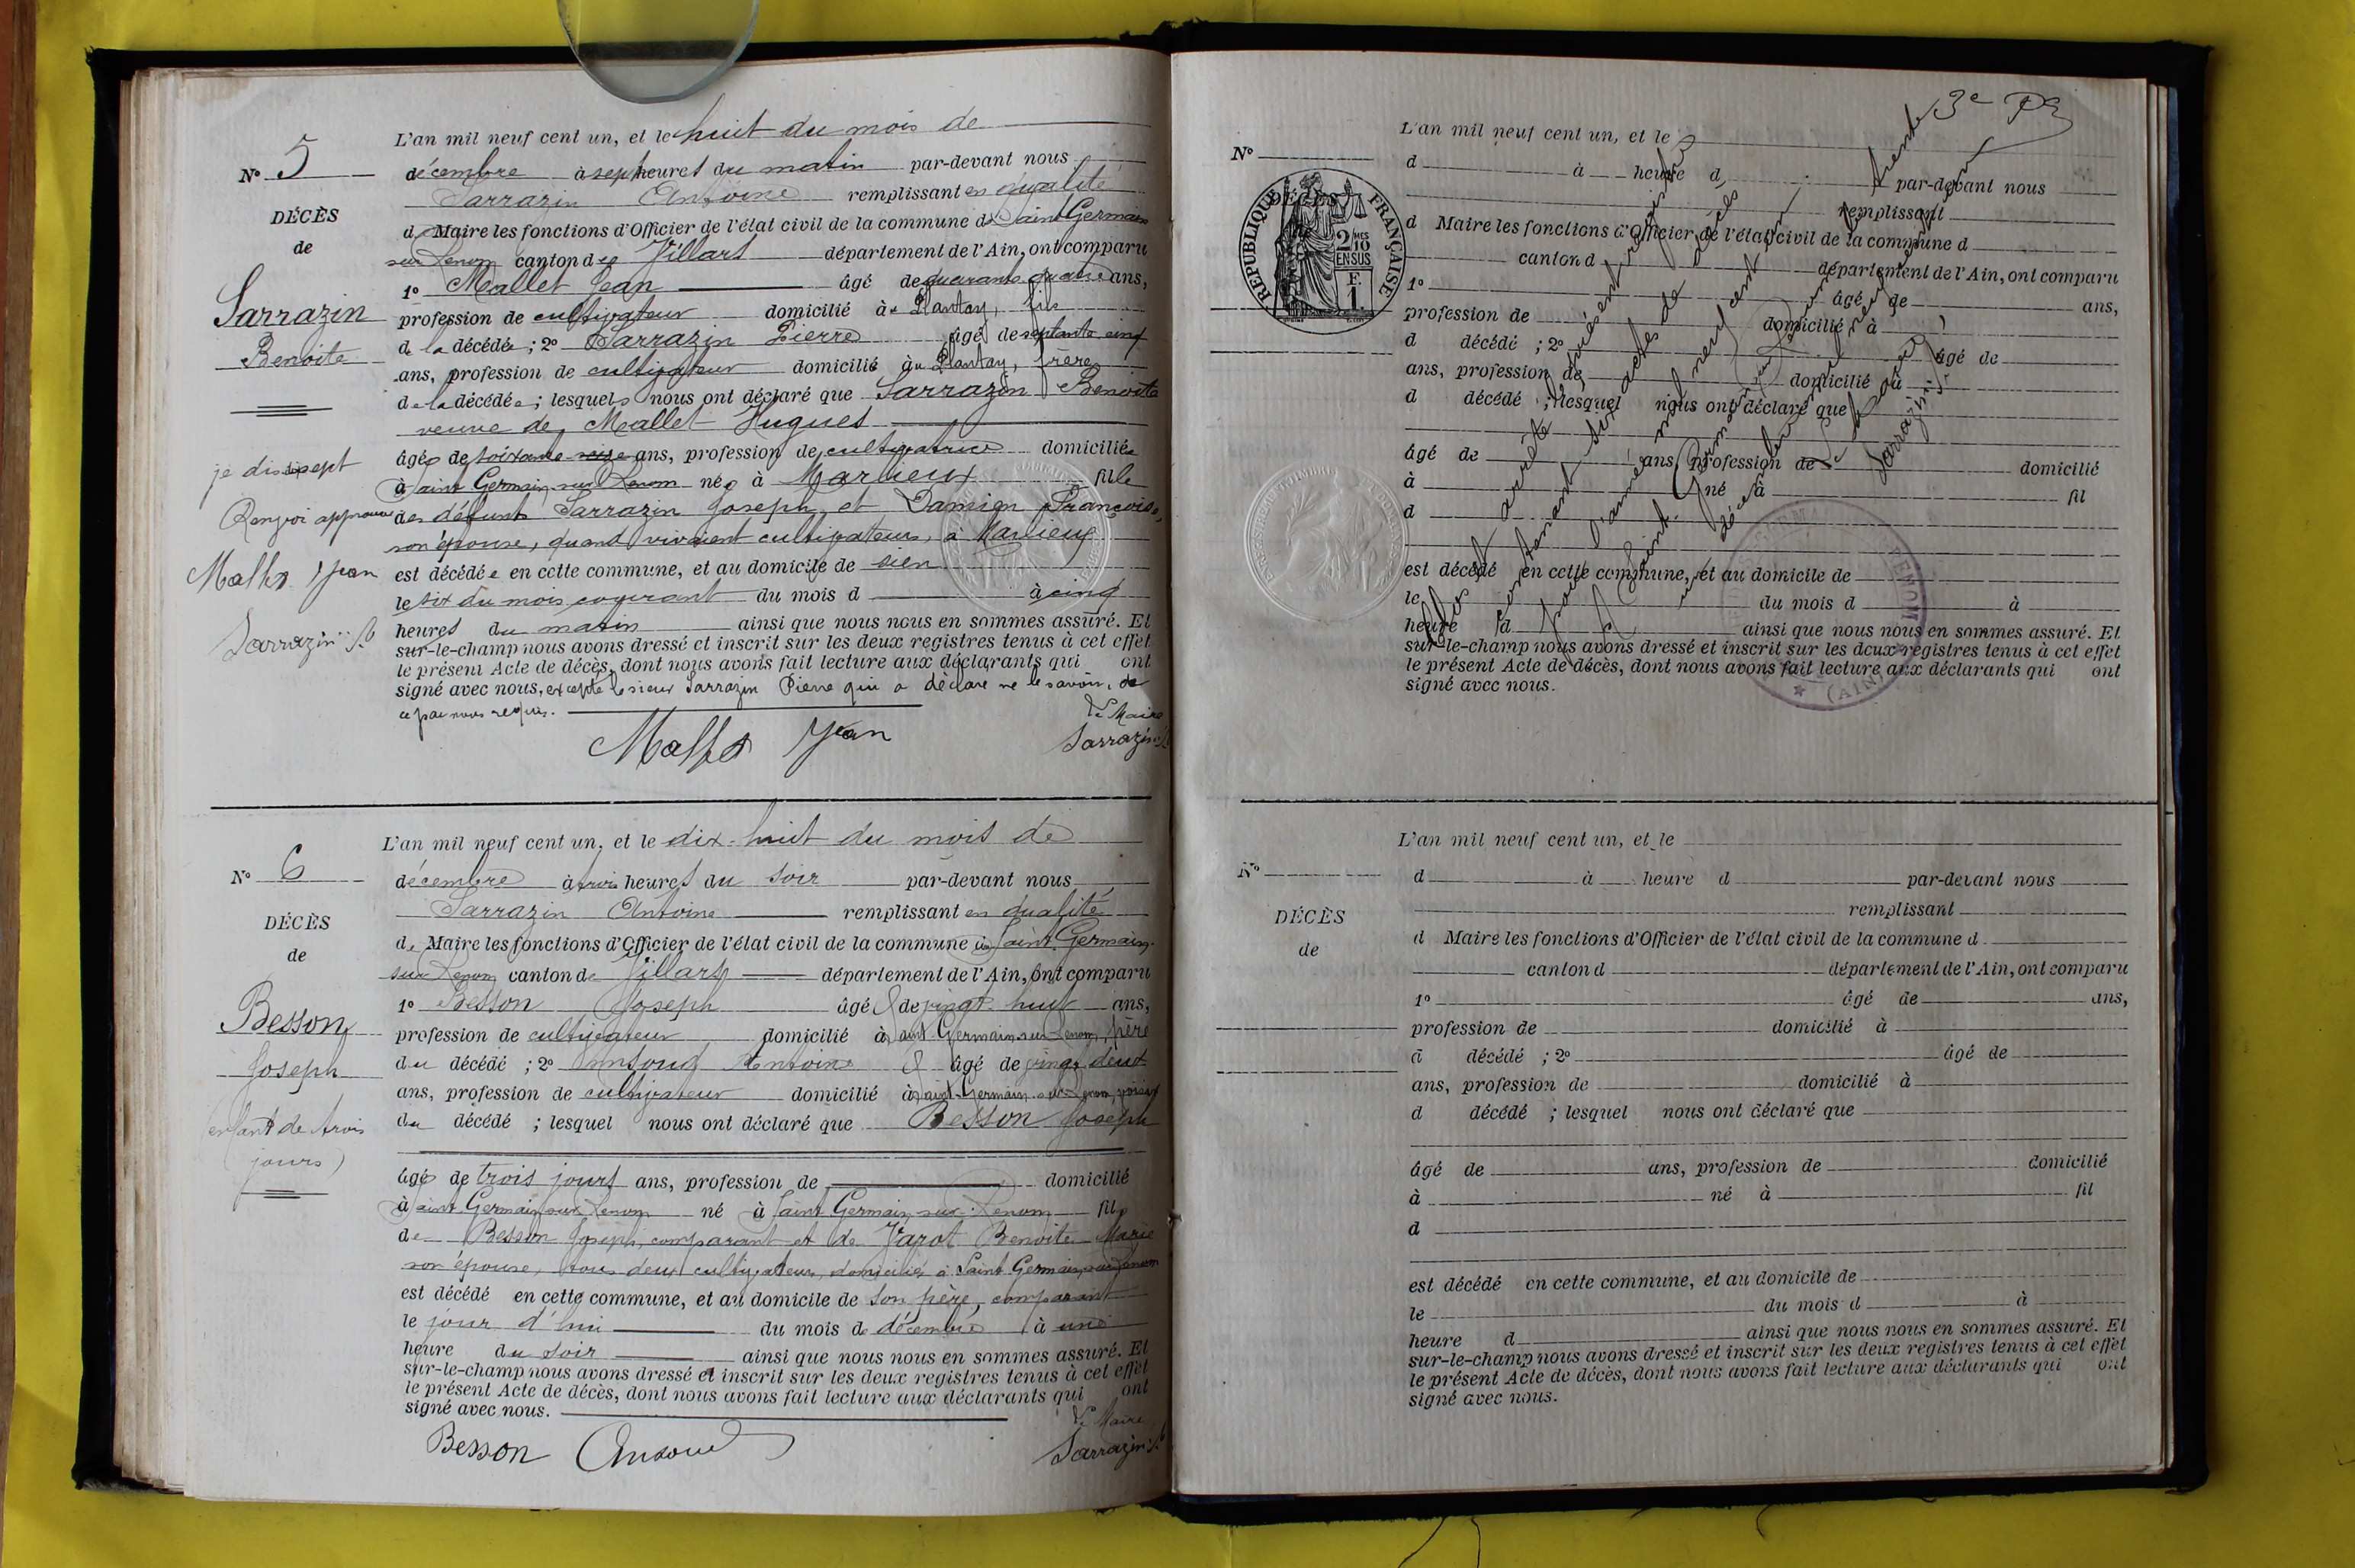 N° 5
DÉCÈS
de
Sarrazin
Benoite
je dis sept
Renvoi approuvé
Mallet Jean
Sarrazin A
L'an mil neuf cent un, et le huit du mois de
décembre à sept heures du matin par-devant nous
Sarrazin Antoine remplissant en qualité
de Maire les fonctions d'Officier de l'état civil de la commune de Saint Germain
sur Renom canton de Villars département de l'Ain, ont comparu
1° Mallet Jean âgé de quarante quatre ans,
profession de cultivateur domicilié à Plantay, fils
de la décédée ; 2° Sarrazin Pierre âgé de septante cinq
ans, profession de cultivateur domicilié au Plantay, frère
de la décédée ; lesquels nous ont déclaré que Sarrazin Benoite
veuve de Mallet Hugues
âgée de soixante ans, profession de cultivatrice domiciliée
à Saint Germain sur Renom née à Marlieux fille
des défunts Sarrazin Joseph, et Damien Françoise,
son épouse, quand vivaient cultivateurs, à Marlieux
est décédée en cette commune, et au domicile de sien
le six du mois courant du mois d à cinq
heures du matin ainsi que nous nous en sommes assuré. Et
sur-le-champ nous avons dressé et inscrit sur les deux registres tenus à cet effet
le présent Acte de décès, dont nous avons fait lecture aux déclarants qui ont
signé avec nous, excepté le sieur Sarrazin Pierre qui a déclaré ne le savoir, de
ce par nous requis.
Le Maire
Mallet Jean Sarrazin A
N° 6
DÉCÈS
de
Besson
Joseph
enfant de trois
jours)
L'an mil neuf cent un, et le dix-huit du mois de
décembre à trois heures du soir par-devant nous
Sarrazin Antoine remplissant en qualité
de Maire les fonctions d'Officier de l'état civil de la commune de Saint Germain
sur Renom canton de Villars département de l'Ain, ont comparu
1° Besson Joseph âgé de vingt-huit ans,
profession de cultivateur domicilié à Saint Germain sur Renom, père
du décédé ; 2° Ansoud Antoine âgé de vingt deux
ans, profession de cultivateur domicilié à Saint-Germain-sur-Renom, voisin
du décédé ; lesquel nous ont déclaré que Besson Joseph
âgé de trois jours ans, profession de domicilié
à Saint Germain sur Renom né à Saint Germain sur Renom fils
de Besson Joseph, comparant et de Varot Benoite Marie
son épouse, tous deux cultivateurs, domiciliés à Saint Germain sur Renom
est décédé en cette commune, et au domicile de son père, comparant
le jour d'hui du mois de décembre à une
heure du soir ainsi que nous nous en sommes assuré. Et
sur-le-champ nous avons dressé et inscrit sur les deux registres tenus à cet effet
le présent Acte de décès, dont nous avons fait lecture aux déclarants qui ont
signé avec nous.
Le Maire
Besson Ansoud Sarrazin A
N°
DÉCÈS
RÉPUBLIQUE FRANÇAISE
2/10 MES
EN SUS
F.
1
L'an mil neuf cent un, et le
d à heure d par-devant nous
remplissant
d Maire les fonctions d'Officier de l'état civil de la commune d
canton d département de l'Ain, ont comparu
1° âgé de ans,
profession de domicilié à
d décédé ; 2° âgé de
ans, profession de domicilié à
d décédé ; lesquel nous ont déclaré que
âgé de ans, profession de domicilié
à né à fil
d
est décédé en cette commune, et au domicile de
le du mois d à
heure d ainsi que nous nous en sommes assuré. Et
sur-le-champ nous avons dressé et inscrit sur les deux registres tenus à cet effet
le présent Acte de décès, dont nous avons fait lecture aux déclarants qui ont
signé avec nous.
Clos et arrêté le présent registre
contenant six actes de décès
pour l'année mil neuf cent un
A Saint-Germain-sur-Renom, le trente
un décembre mil neuf cent un
Le Maire
Sarrazin A
(AIN)
N°
DÉCÈS
de
L'an mil neuf cent un, et le
d à heure d par-devant nous
remplissant
d Maire les fonctions d'Officier de l'état civil de la commune d
canton d département de l'Ain, ont comparu
1° âgé de ans,
profession de domicilié à
d décédé ; 2° âgé de
ans, profession de domicilié à
d décédé ; lesquel nous ont déclaré que
âgé de ans, profession de domicilié
à né à fil
d
est décédé en cette commune, et au domicile de
le du mois d à
heure d ainsi que nous nous en sommes assuré. Et
sur-le-champ nous avons dressé et inscrit sur les deux registres tenus à cet effet
le présent Acte de décès, dont nous avons fait lecture aux déclarants qui ont
signé avec nous.